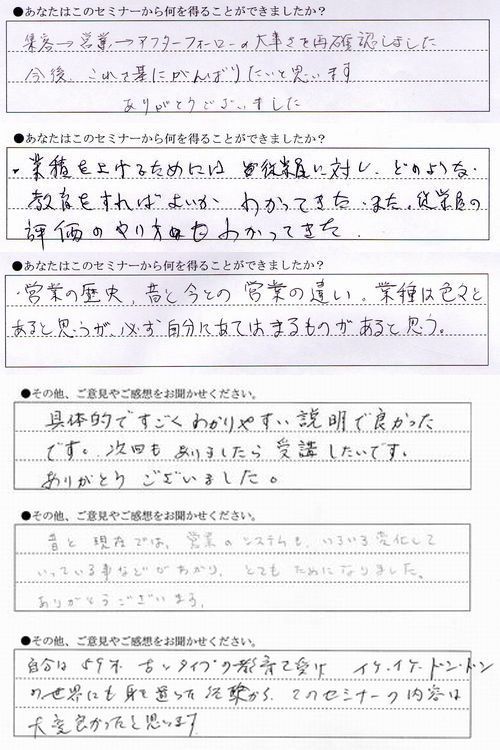 ●あなたはこのセミナーから何を得ることができましたか？
集客→営業→アフターフォローの大事さを再確認しました
今後、これを基にがんばりたいと思います
ありがとうございました
●あなたはこのセミナーから何を得ることができましたか？
・業積を上げるためには 従業員に対し、どのような
教育をすればよいか わかってきた。また、従業員の
評価のやり方もわかってきた。
●あなたはこのセミナーから何を得ることができましたか？
・営業の歴史、昔と今との営業の違い。業種は色々と
あると思うが、必ず自分にあてはまるものがあると思う。
●その他、ご意見やご感想をお聞かせください。
具体的ですごくわかりやすい説明で良かった
です。次回もありましたら受講したいです。
ありがとう ございました。
●その他、ご意見やご感想をお聞かせください。
昔と現在では、営業のシステムも、いろいろ変化して
いっている事などがわかり、とてもためになりました。
ありがとうございます。
●その他、ご意見やご感想をお聞かせください。
自分は59才 古いタイプの教育を受け イケ・イケ・ドン・ドン
の世界にも身を置った経験から、このセミナーの内容は
大変良かったと思います